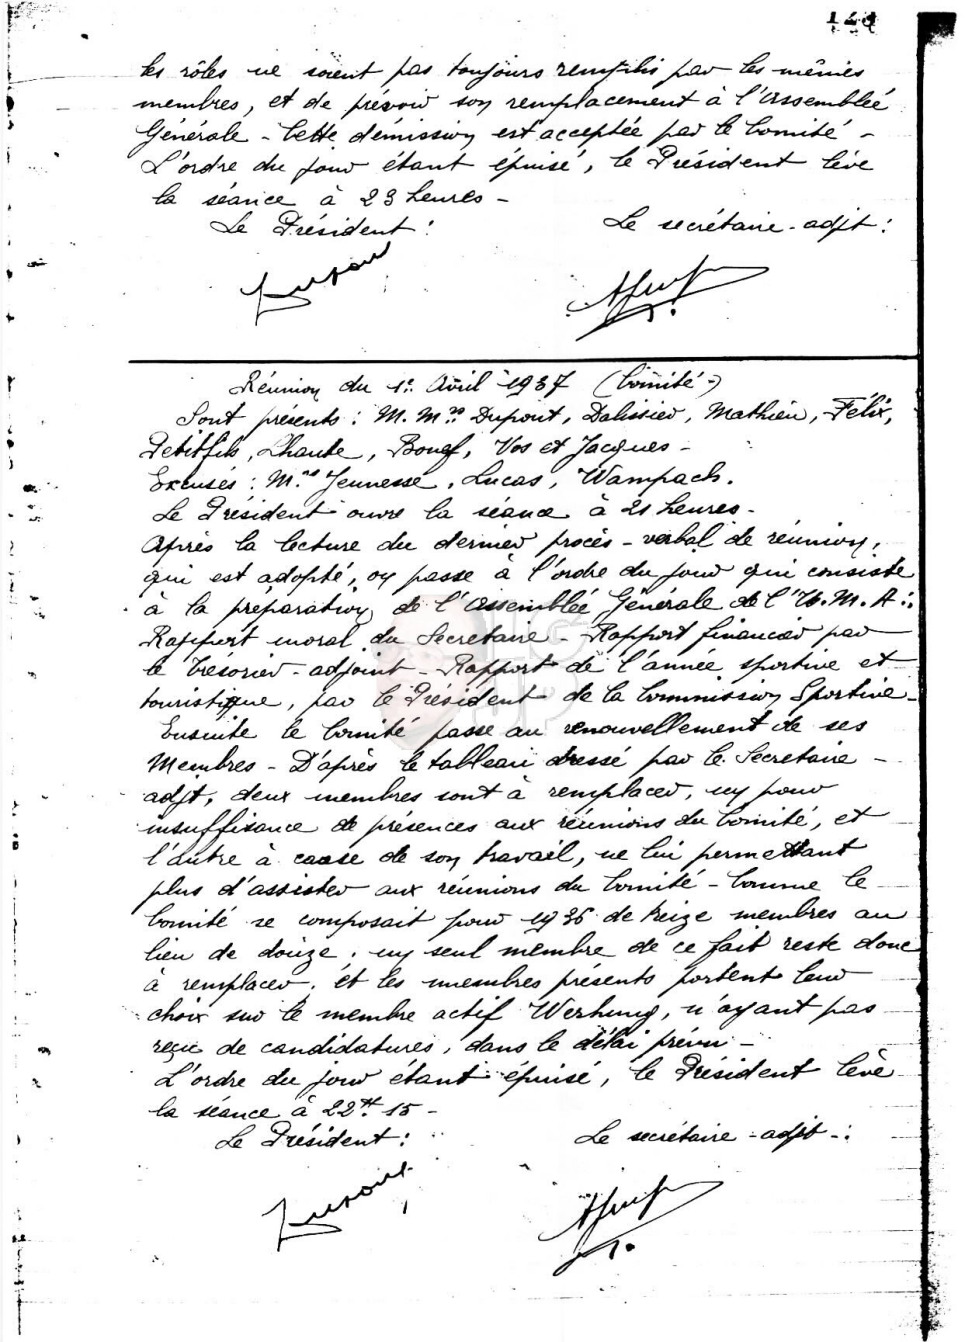 les rôles ne soient pas toujours remplis par les mêmes
membres, et de prévoir son remplacement à l'Assemblée
Générale - Cette démission est acceptée par le Comité -
L'ordre du jour étant épuisé, le Président lève
la séance à 23 heures -
Le Président : Le secrétaire-adjt :
Réunion du 1er Avril 1937 (Comité -)
Sont présents : M.Mrs Dupont, Dalissier, Mathieu, Félix,
Petitfils, Lhaute, Bouef, Vos et Jacques -
Excusés : Mrs Jeunesse, Lucas, Wampach.
Le Président ouvre la séance à 21 heures -
Après la lecture du dernier procès-verbal de réunion,
qui est adopté, on passe à l'ordre du jour qui consiste
à la préparation de l'Assemblée Générale de l'U.M.A :
Rapport moral du Secrétaire - Rapport financier par
le Trésorier-adjoint - Rapport de l'année sportive et
touristique, par le Président de la Commission Sportive -
Ensuite le Comité passe au renouvellement de ses
Membres - D'après le tableau dressé par le Secretaire -
adjt, deux membres sont à remplacer, un pour
insuffisance de présences aux réunions du Comité, et
l'autre à cause de son travail, ne lui permettant
plus d'assister aux réunions du Comité - Comme le
Comité se composait pour 1936 de treize membres au
lieu de douze, un seul membre de ce fait reste donc
à remplacer, et les membres présents portent leur
choix sur le membre actif Werhung, n'ayant pas
reçu de candidatures, dans le délai prévu -
L'ordre du jour étant épuisé, le Président lève
la séance à 22H 15 -
Le Président : Le secrétaire-adjt - :